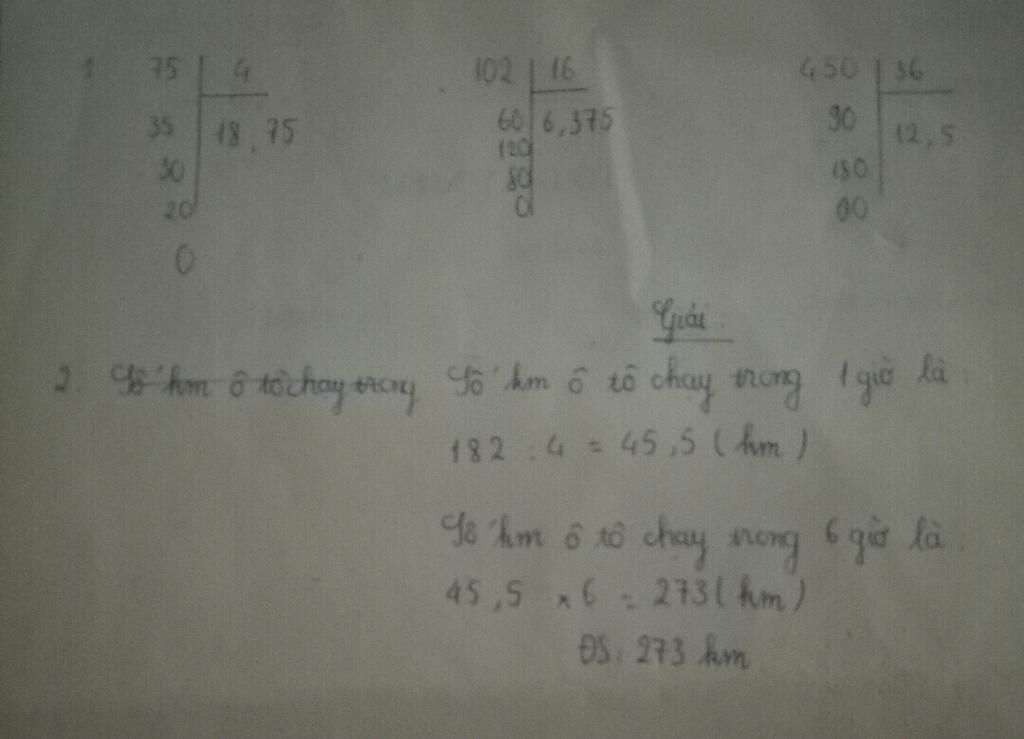 1 75 4 102 16 450 36
35 18,75 60 6,375 90 12,5
30 120 180
20 80 00
0 0
Giải:
2. Số km ô tô chạy trong Số km ô tô chạy trong 1 giờ là:
182 : 4 = 45,5 (km)
Số km ô tô chạy trong 6 giờ là:
45,5 x 6 = 273 (km)
ĐS: 273 km